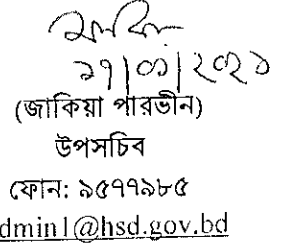 ২৭|০১|২০২১
(জাকিয়া পারভীন)
উপসচিব
ফোন: ৯৫৭৭৯৮৫
dmin1@hsd.gov.bd